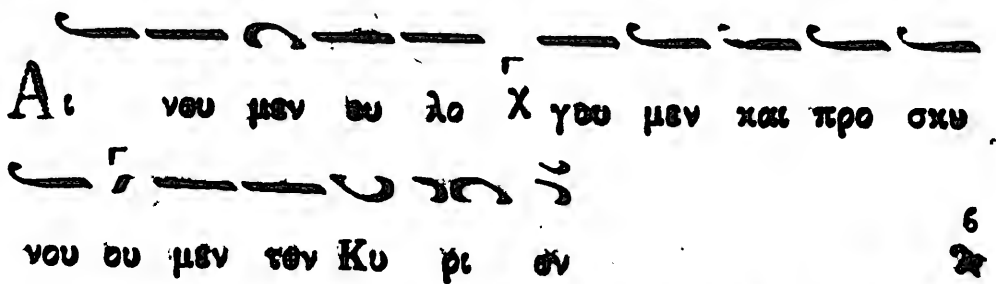 Αι νου μεν ευ λο Γ χ γου μεν και προ σκυ
νου ου μεν τον Κυ ρι ον